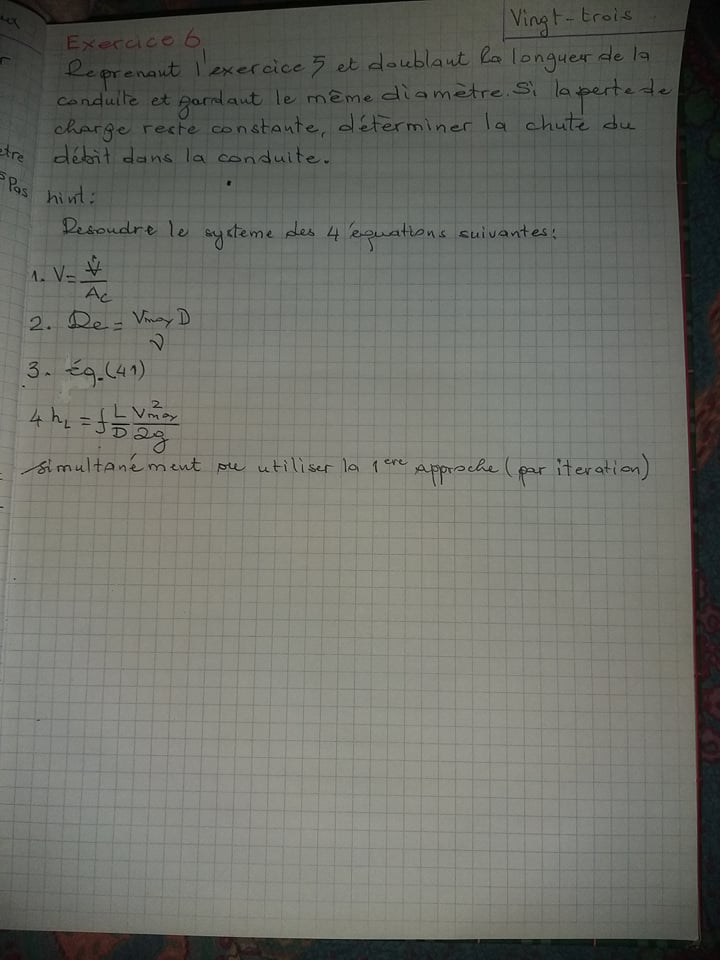 Vingt-trois
Exercice 6
Reprenant l'exercice 5 et doublant la longuer de la
conduite et gardant le même diamètre. Si la perte de
charge reste constante, déterminer la chute du
débit dans la conduite.
hint:
Resoudre le systeme des 4 équations suivantes:
1. V = V̇ / Ac
2. Re = Vmoy D / ν
3. Éq. (41)
4 hL = f L/D Vmoy² / 2g
simultanément ou utiliser la 1ere approche (par iteration)
etre
Pas